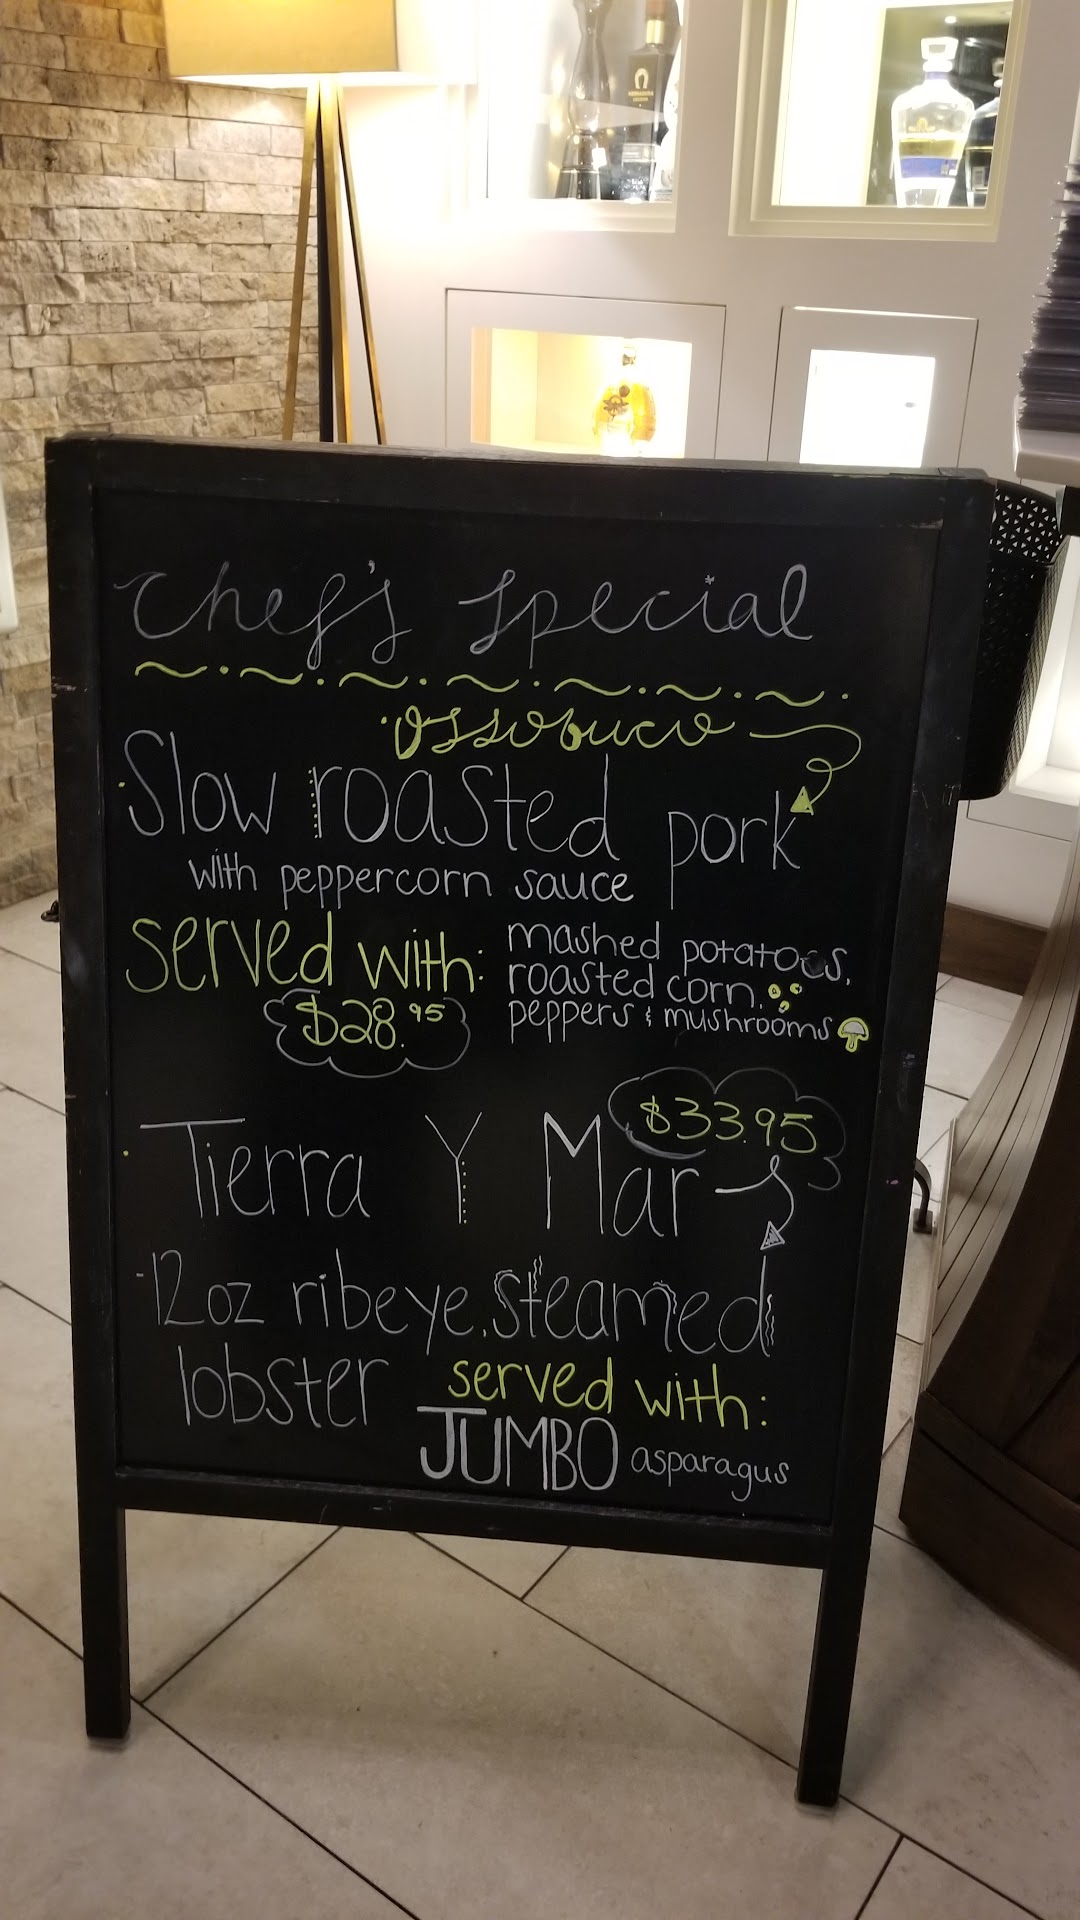 Chef's Special
ossobuco
Slow roasted pork
with peppercorn sauce
served with:
mashed potatoes,
roasted corn,
peppers & mushrooms
$28.95
$33.95
Tierra Y Mar
12 oz ribeye, steamed
lobster served with:
JUMBO asparagus